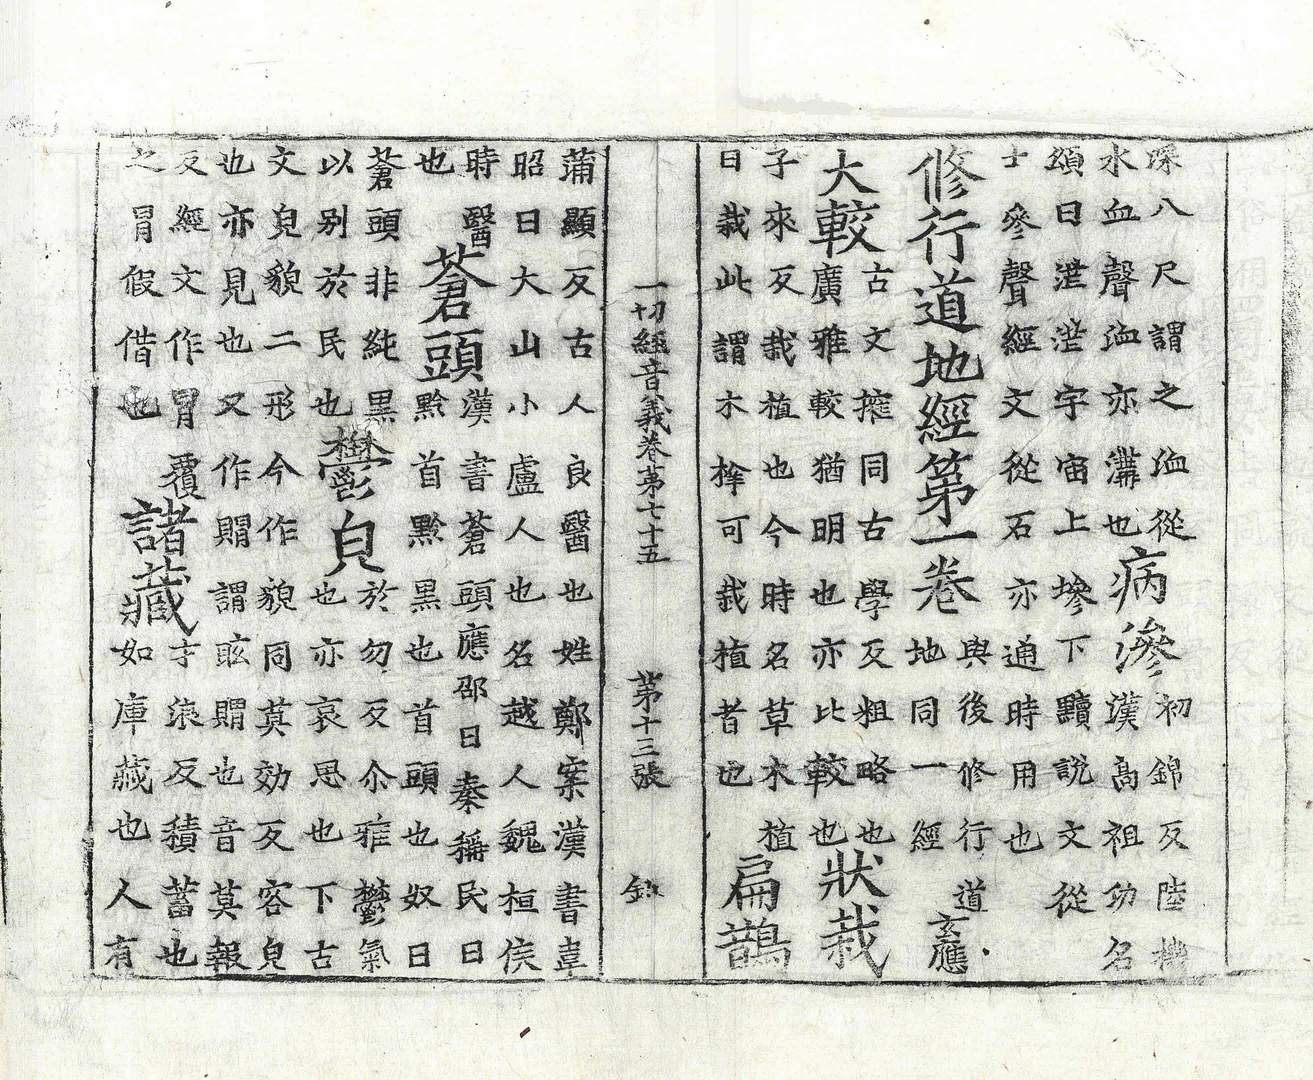 深八尺謂之洫從
水血聲洫亦溝也
病滲
初錦反陸機
漢高祖功名
頌曰茫茫宇宙上墋下黷説文從
士參聲經文從石亦通時用也
修行道地經第一卷
與後修行道
地同一經
玄應
大較
古文搉同古學反粗略也
廣雅較猶明也亦比較也
狀栽
子來反栽植也今時名草木植
曰栽此謂木榟可栽植者也
扁鵲
一切經音義卷第七十五 第十三張
蒲顯反古人良醫也姓鄭案漢書韋
昭曰大山小盧人也名越人魏桓侯
時醫
也
蒼頭
漢書蒼頭應邵曰秦稱民曰
黔首黔黑也首頭也奴曰
蒼頭非純黑
以别於民也
鬱皃
於勿反尒雅鬱氣
也亦哀思也下古
文皃貌二形今作貌同莫効反容皃
也亦見也又作䀤謂眩䀤也音莫報
反經文作冒覆
之冒假借也
諸藏
才浪反積蓄也
如庫藏也人有